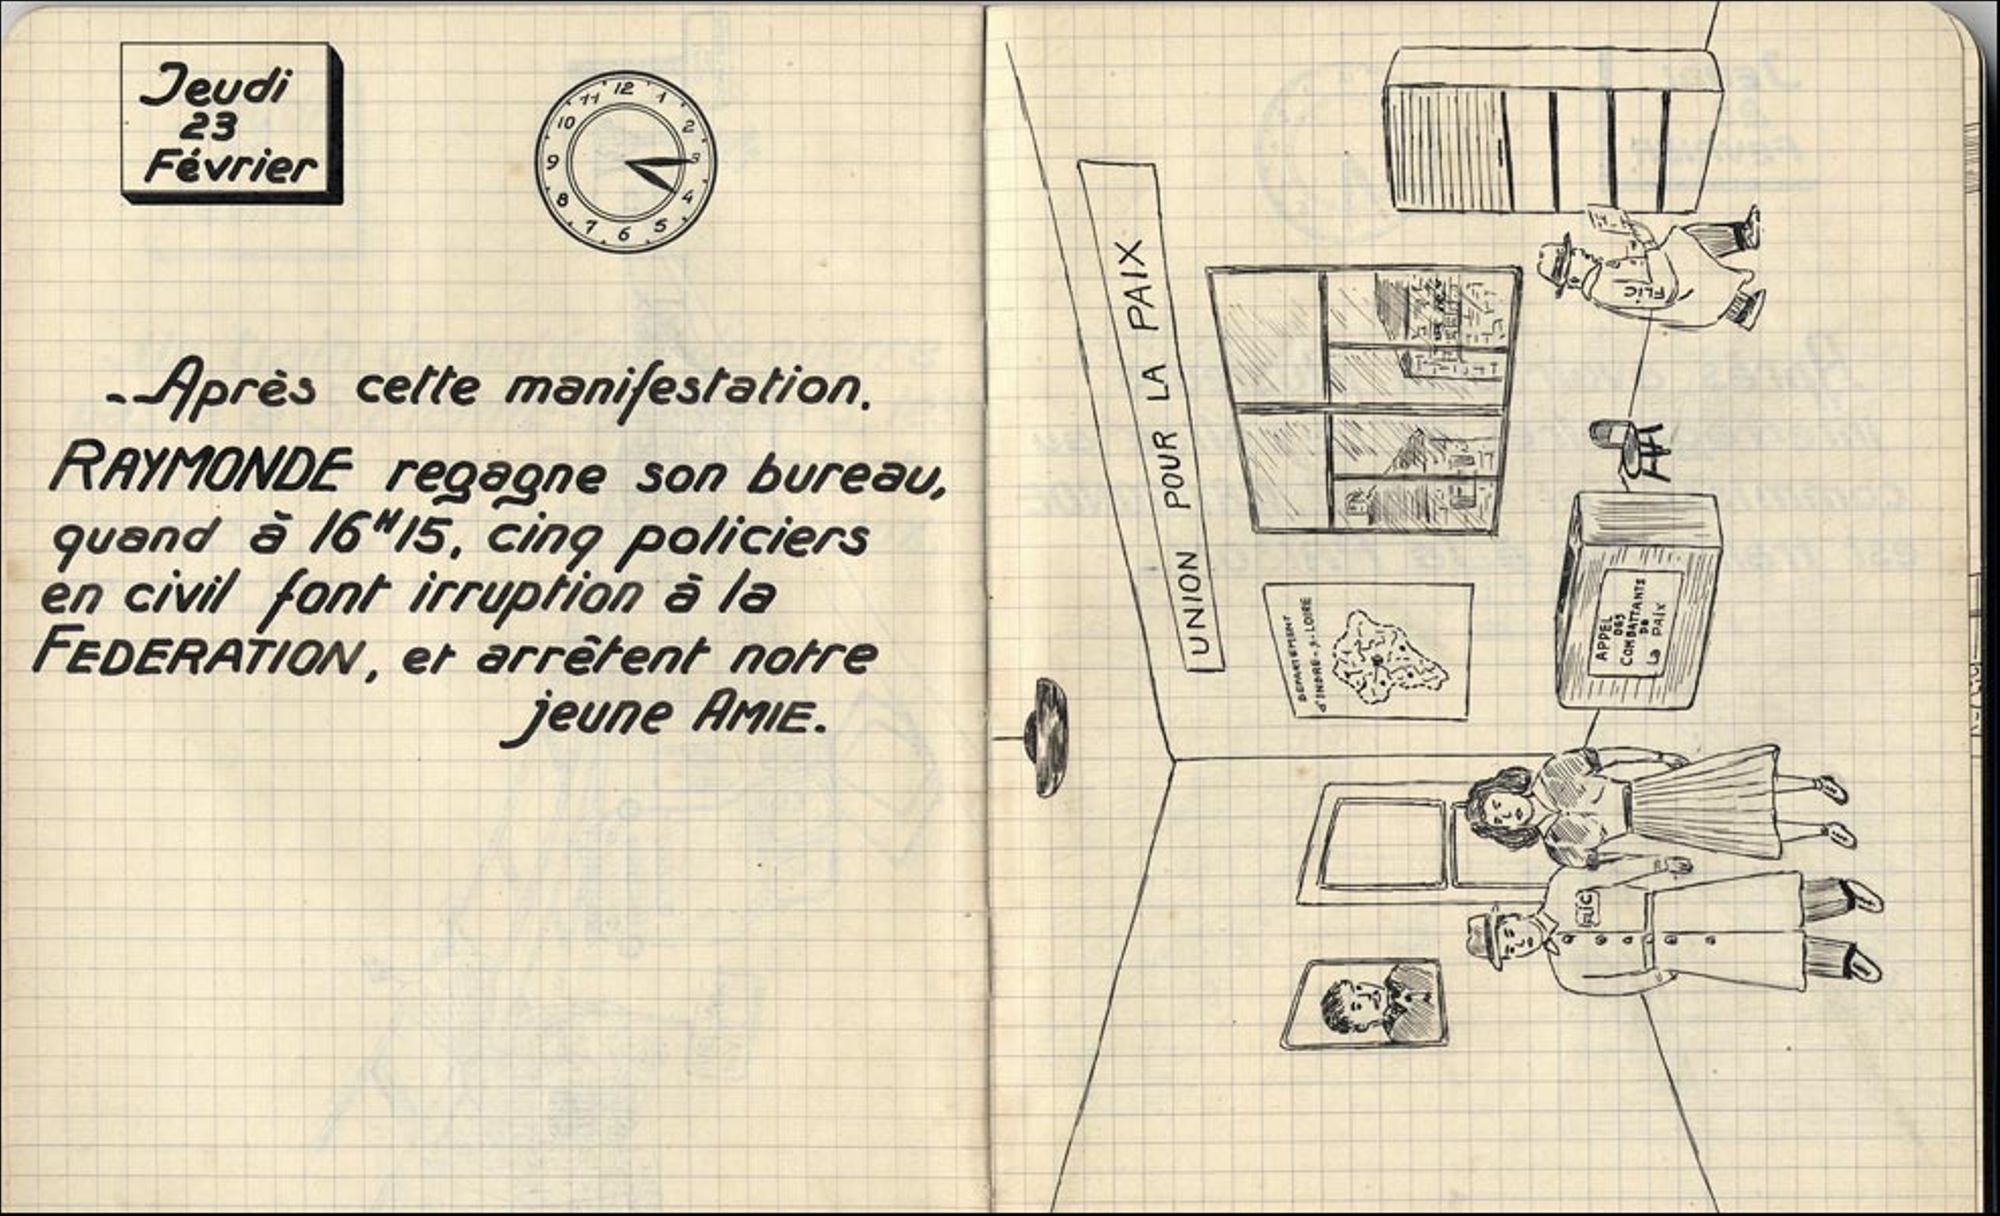 Jeudi
23
Février
12
1
2
3
4
5
6
7
8
9
10
11
--Après cette manifestation.
RAYMONDE regagne son bureau,
quand à 16H15, cinq policiers
en civil font irruption à la
FEDERATION, et arrêtent notre
jeune AMIE.
UNION POUR LA PAIX
DEPARTEMENT
d'INDRE-&-LOIRE
APPEL
DES
COMBATTANTS
DE
La PAIX
FLIC
FLIC